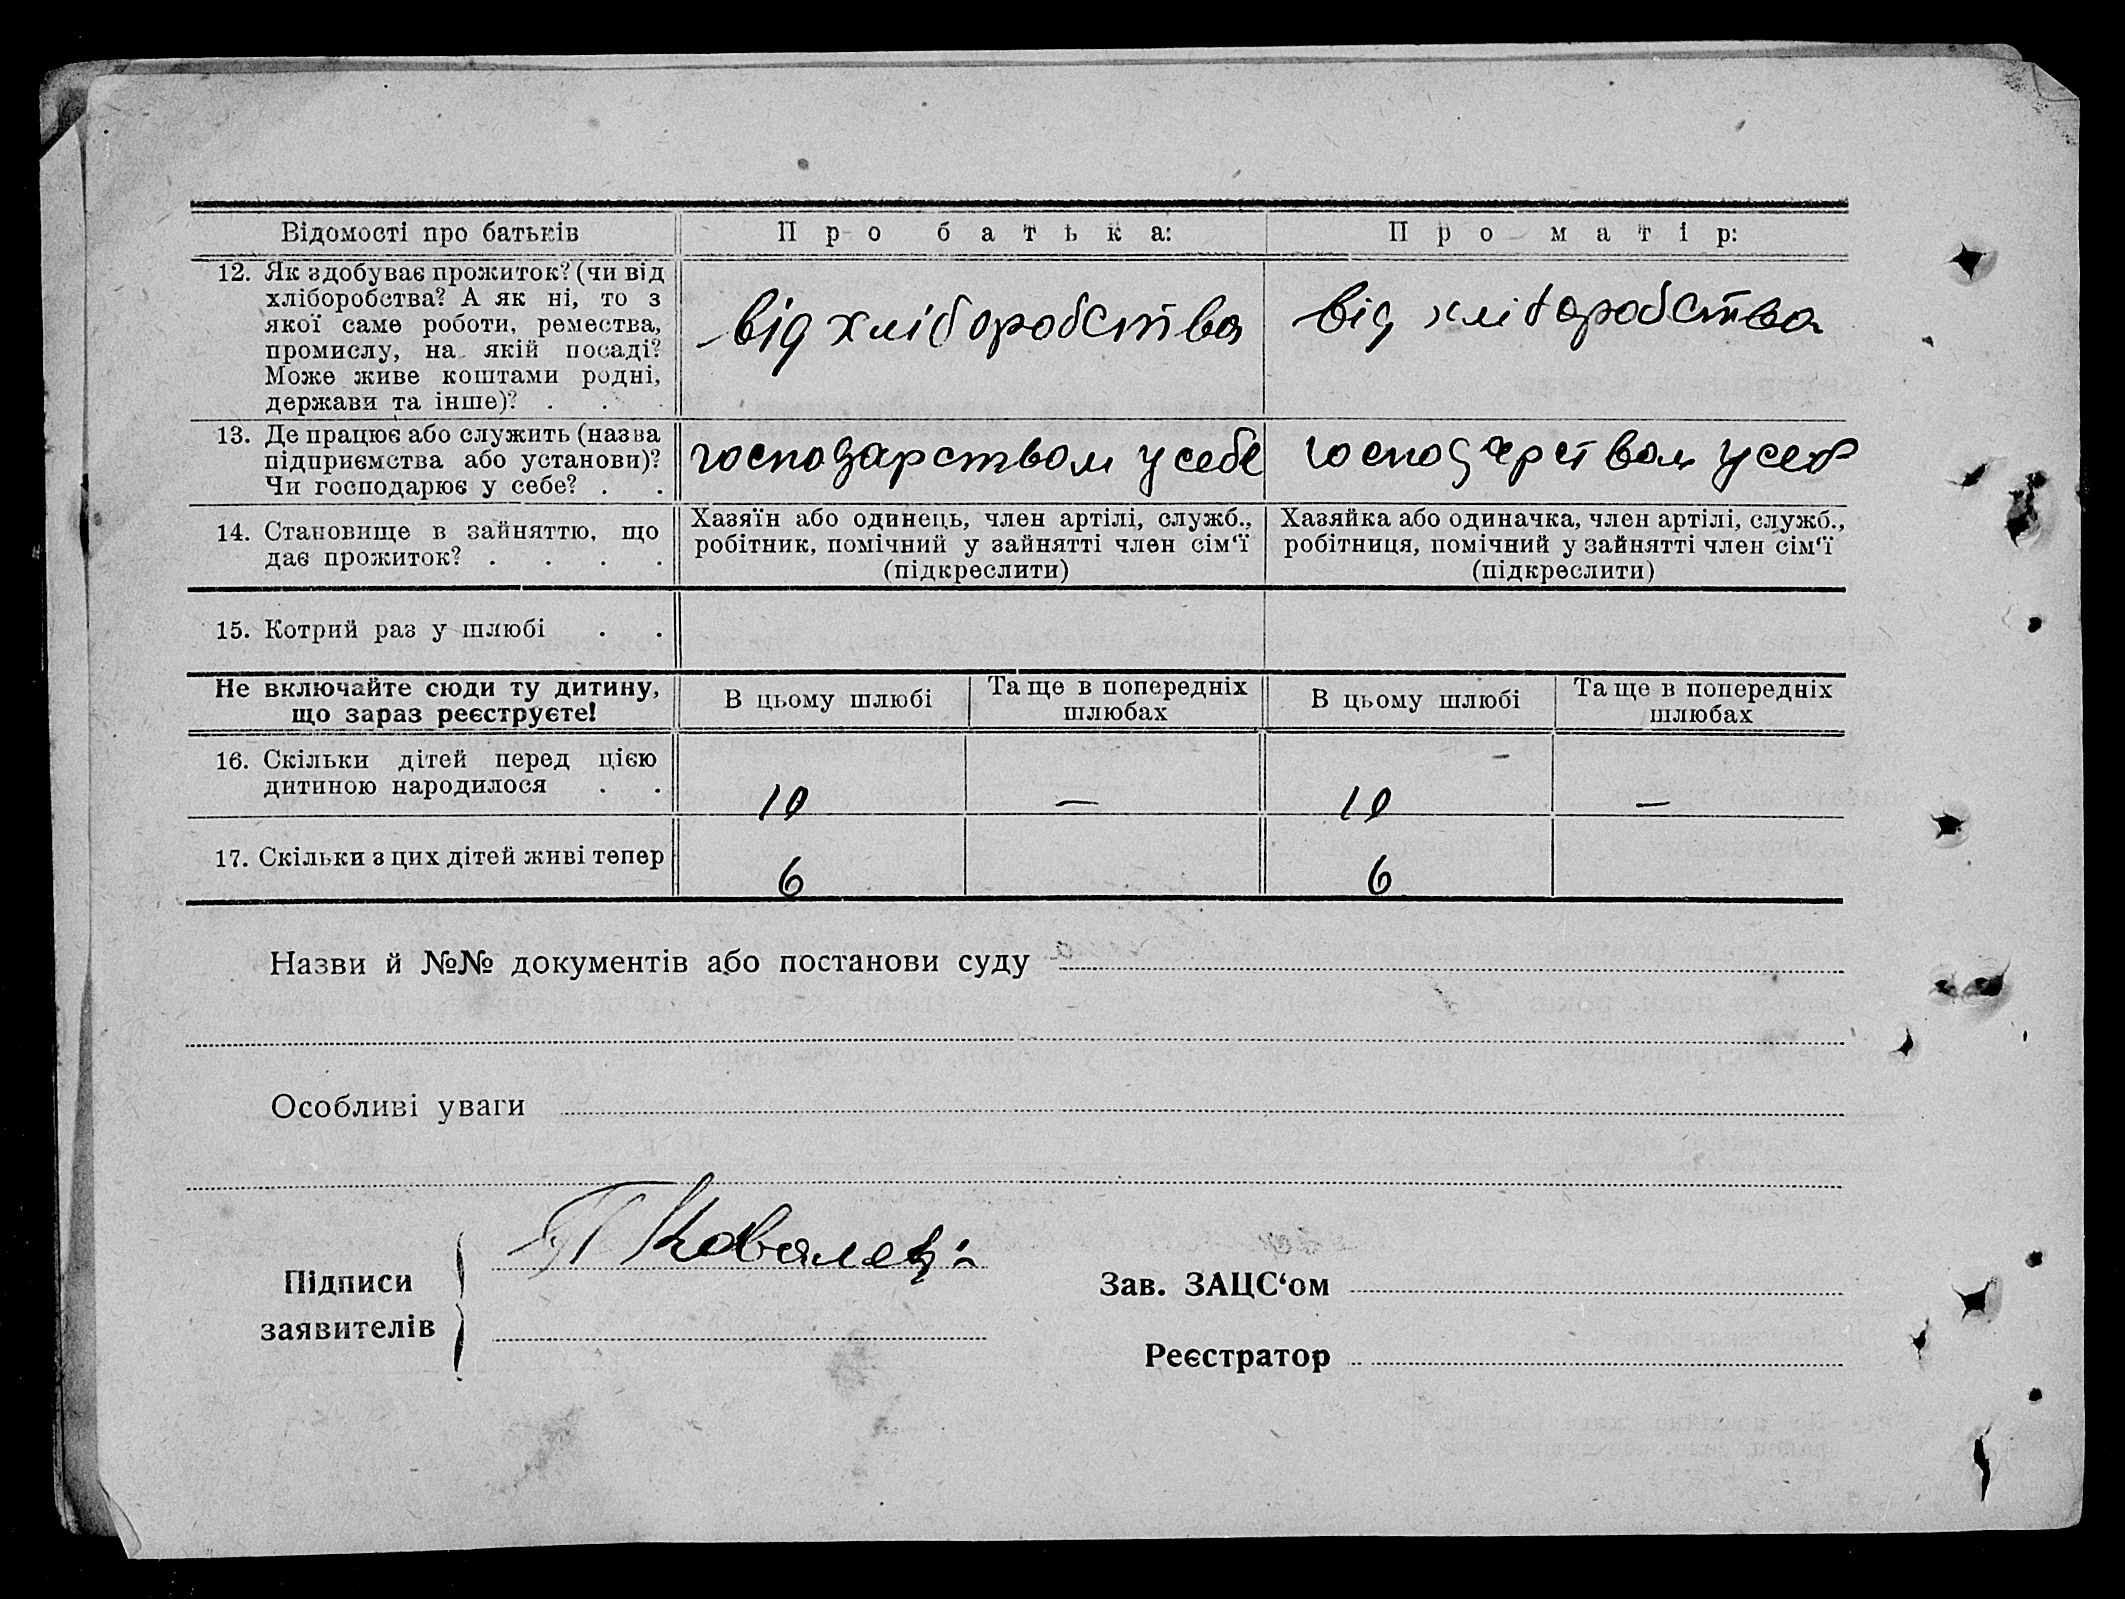 Відомості про батьків
Про батька:
Про матір:
12. Як здобуває прожиток? (чи від
хліборобства? А як ні, то з
якої саме роботи, ремества,
промислу, на якій посаді?
Може живе коштами родні,
держави та інше)? . . .
від хліборобства
від хліборобства
13. Де працює або служить (назва
підприємства або установи)?
Чи господарює у себе? . .
господарством у себе
господарством у себе
14. Становище в зайняттю, що
дає прожиток? . . . .
Хазяїн або одинець, член артілі, служб.,
робітник, помічний у зайнятті член сім‘ї
(підкреслити)
Хазяйка або одиначка, член артілі, служб.,
робітниця, помічний у зайнятті член сім‘ї
(підкреслити)
15. Котрий раз у шлюбі . .
Не включайте сюди ту дитину,
що зараз реєструєте!
В цьому шлюбі
Та ще в попередніх
шлюбах
В цьому шлюбі
Та ще в попередніх
шлюбах
16. Скільки дітей перед цією
дитиною народилося . .
10
—
10
—
17. Скільки з цих дітей живі тепер
6
6
Назви й №№ документів або постанови суду
Особливі уваги
Підписи
заявителів
Зав. ЗАЦС‘ом
Реєстратор